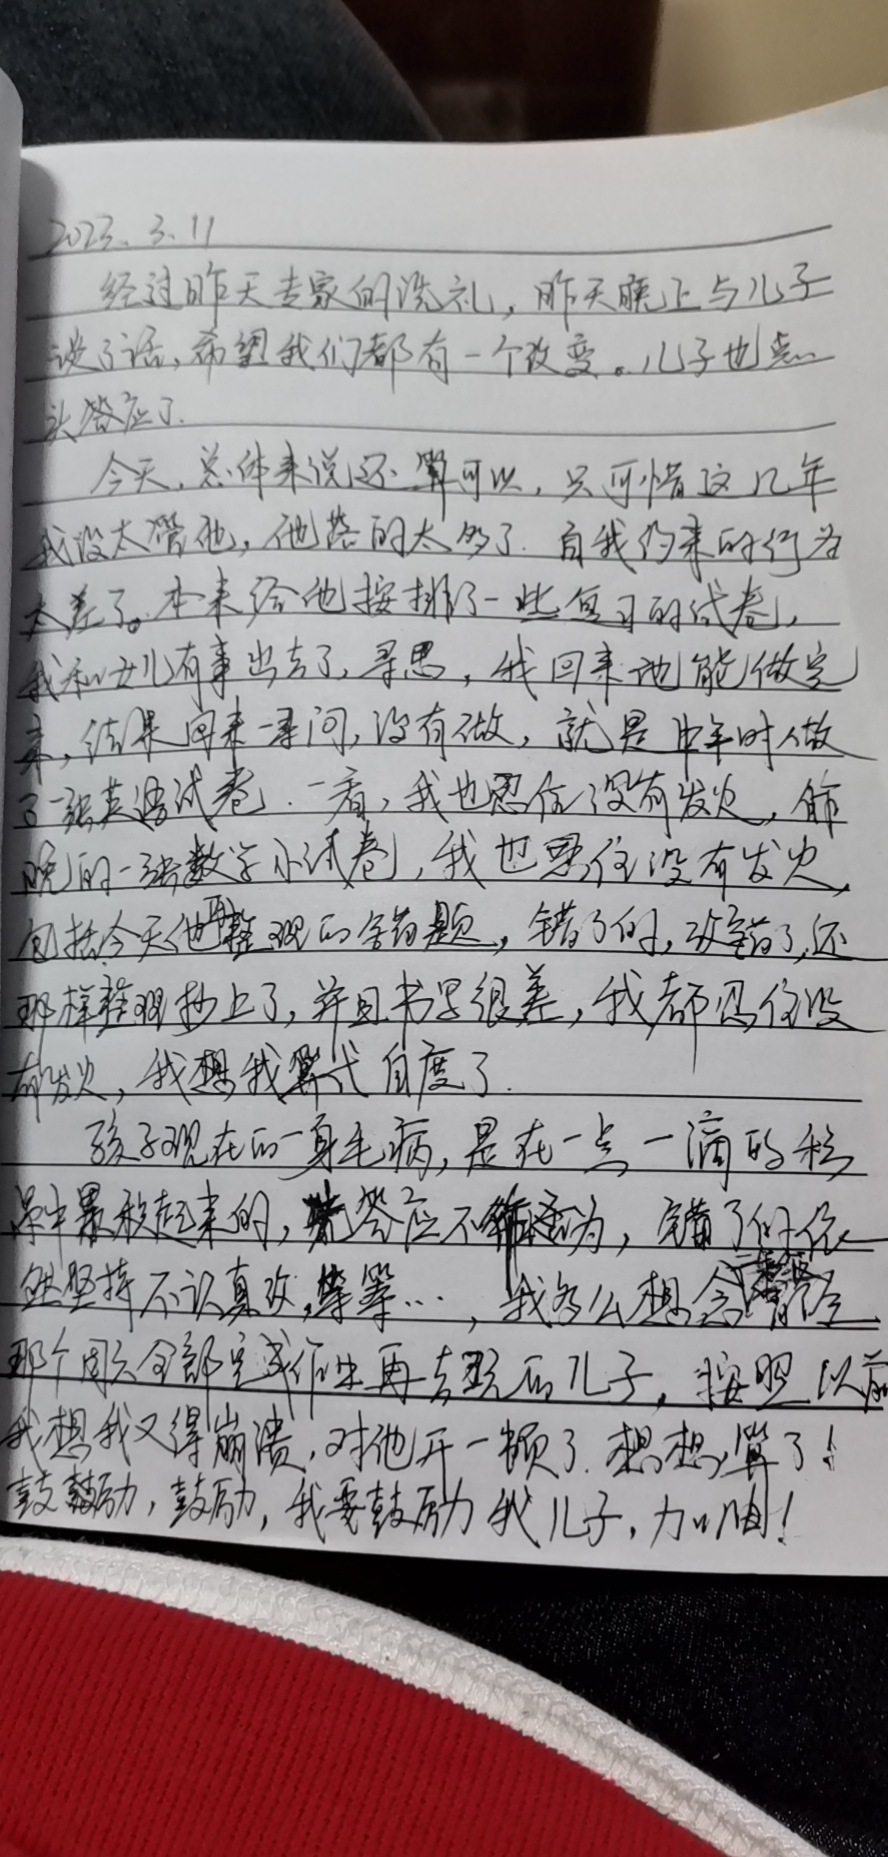 2023.3.11
经过昨天专家的洗礼，昨天晚上与儿子
谈了话，希望我们都有一个改变。儿子也点
头答应了.
今天，总体来说还算可以，只可惜这几年
我没太管他，他落的太多了.自我约束的行为
太差了。本来给他按排了一些复习的试卷，
我和女儿有事出去了，寻思，我回来他能做完
来，结果回来一寻问，没有做，就是中午时候做
了一张英语试卷.一看，我也忍住没有发火，
晚的一张数学小试卷，我也忍住没有发火，
包括今天他再整理的错题，错了的，改错了，还
那样整理抄上了，并且书写很差，我都忍住没
有发火，我想我算大自度了.
孩子现在的一身毛病，是在一点一滴的积
累中累积起来的，光答应不作为，错了的依
然坚持不认真改，等等…，我多么想念
那个周六全部完成作业再去玩的儿子，按照以前
我想我又得崩溃，对他开一顿了.想想，算了！
鼓励，鼓励，我要鼓励我儿子，加油！